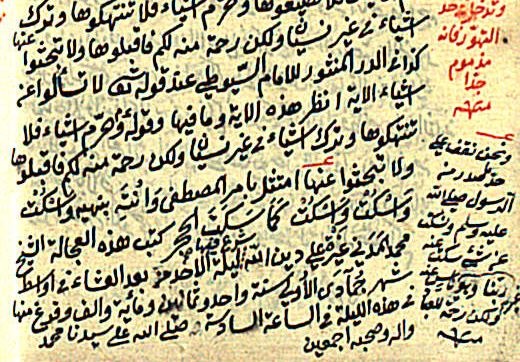 فلا تضيعوها وحرم اشياء فلا تنتهكوها وترك
اشياء في غير نسيان ولكن رحمة منه لكم فاقبلوها ولا تبحثوا عنها
كذا في الدر المنثور للامام السيوطي عند قوله تعالى لا تسألوا عن
اشياء الاية انظر هذه الاية وما فيها وقوله وحرم اشياء فلا
تنتهكوها وترك اشياء في غير نسيان ولكن رحمة منه لكم فاقبلوها
ولا تبحثوا عنها امتثل بامر المصطفى وانته بنهيه واسكت
واسكت واسكت كما سكت الحجر كتب هذه العجالة الشيخ
شرع فيها
محمد المدني غيرة على دين الله ليلة الاحد بعد العشاء في اواسط
شهر جمادى الاولى سنة واحد وثمانين ومائة والف وفرغ منها
في هذه الليلة في الساعة السادسة وصلى الله على سيدنا محمد
واله وصحبه اجمعين
حد
التهور فانه
مذموم
جدا
منه
ونحن نقف على
حد
الرسول صلى الله
عليه وسلم ونسكت
عن شيء سكت عنه
ربنا
ولكن رحمة
منه